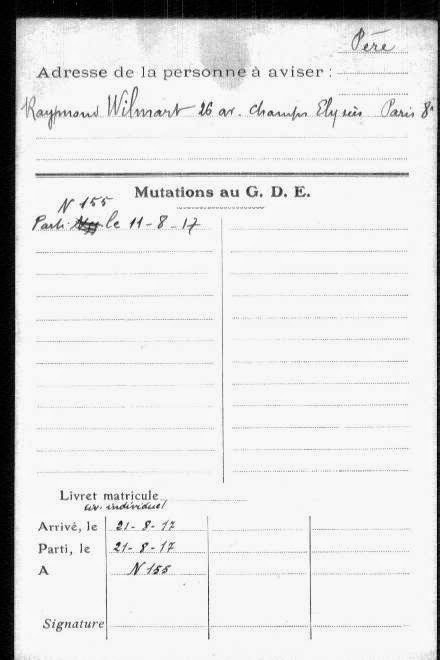 Père
Adresse de la personne à aviser :
Raymond Wilmart 26 av. Champs Elysées Paris 8e
Mutations au G. D. E.
N 155
Parti le 11-8-17
Livret matricule
liv. individuel
Arrivé, le 21-8-17
Parti, le 21-8-17
A N 155
Signature